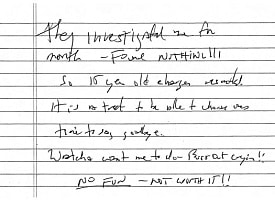 They investigated me for
month - FOUND NOTHING!!!
So 15 year old charges resulted.
It is a treat to be able to choose ones
time to say goodbye.
Watcha want me to do - Bust out cryin!!
NO FUN - NOT WORTH IT!!